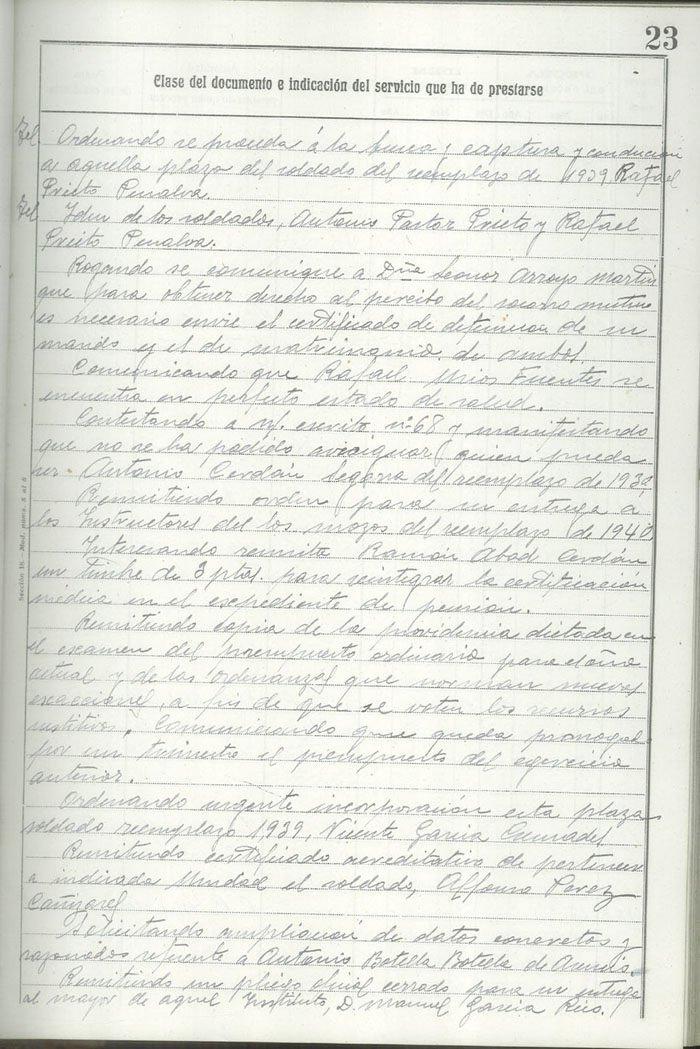 23
Clase del documento e indicación del servicio que ha de prestarse
Tel Ordenando se proceda á la busca y captura y conducción
a aquella plaza del soldado del reemplazo de 1939 Rafael
Prieto Penalva.
Tel Idem de los soldados, Antonio Pastor Prieto y Rafael
Preito Penalva.
Rogando se comunique a Dña Leonor Arroyo Martin
que para obtener derecho al percibo del socorro mutuo
es necesario envie el certificado de detencion de su
marido y el de matrimonio de ambos
Comunicando que Rafael Mios Fuentes se
encuentra en perfecto estado de salud.
Contestando a n/. escrito nº 68 y manifestando
que no se ha podido averiguar quien pueda
ser Antonio Cerdán Segarra del reemplazo de 1939
Remitiendo orden para su entrega a
los Instructores del los mozos del reemplazo de 1940
Interesando remita Ramón Abad Cerdán
un timbre de 3 ptas. para reintegrar la certificación
médica en el expediente de pensión.
Remitiendo copia de la providencia dictada en
el examen del presupuesto ordinario para el año
actual y de las ordenanzas que norman nuevas
exacciones, a fin de que se voten los recursos
sustitivos. Comunicando que queda prorrogado
por un trimestre el presupuesto del ejercicio
anterior.
Ordenando urgente incorporación esta plaza
soldado reemplazo 1939, Vicente Garcia
Remitiendo certificado acreditativo de pertenecer
a indicada Unidad el soldado, Alfonso Perez
Cañizares
Solicitando ampliación de datos concretos y
razonados referente a Antonio Botella Botella de
Remitiendo un pliego oficial cerrado para su entrega
al mayor de aquel Instituto, D. Manuel Garcia Rico.
Sección 10.-Mod. núms. 5 al 8